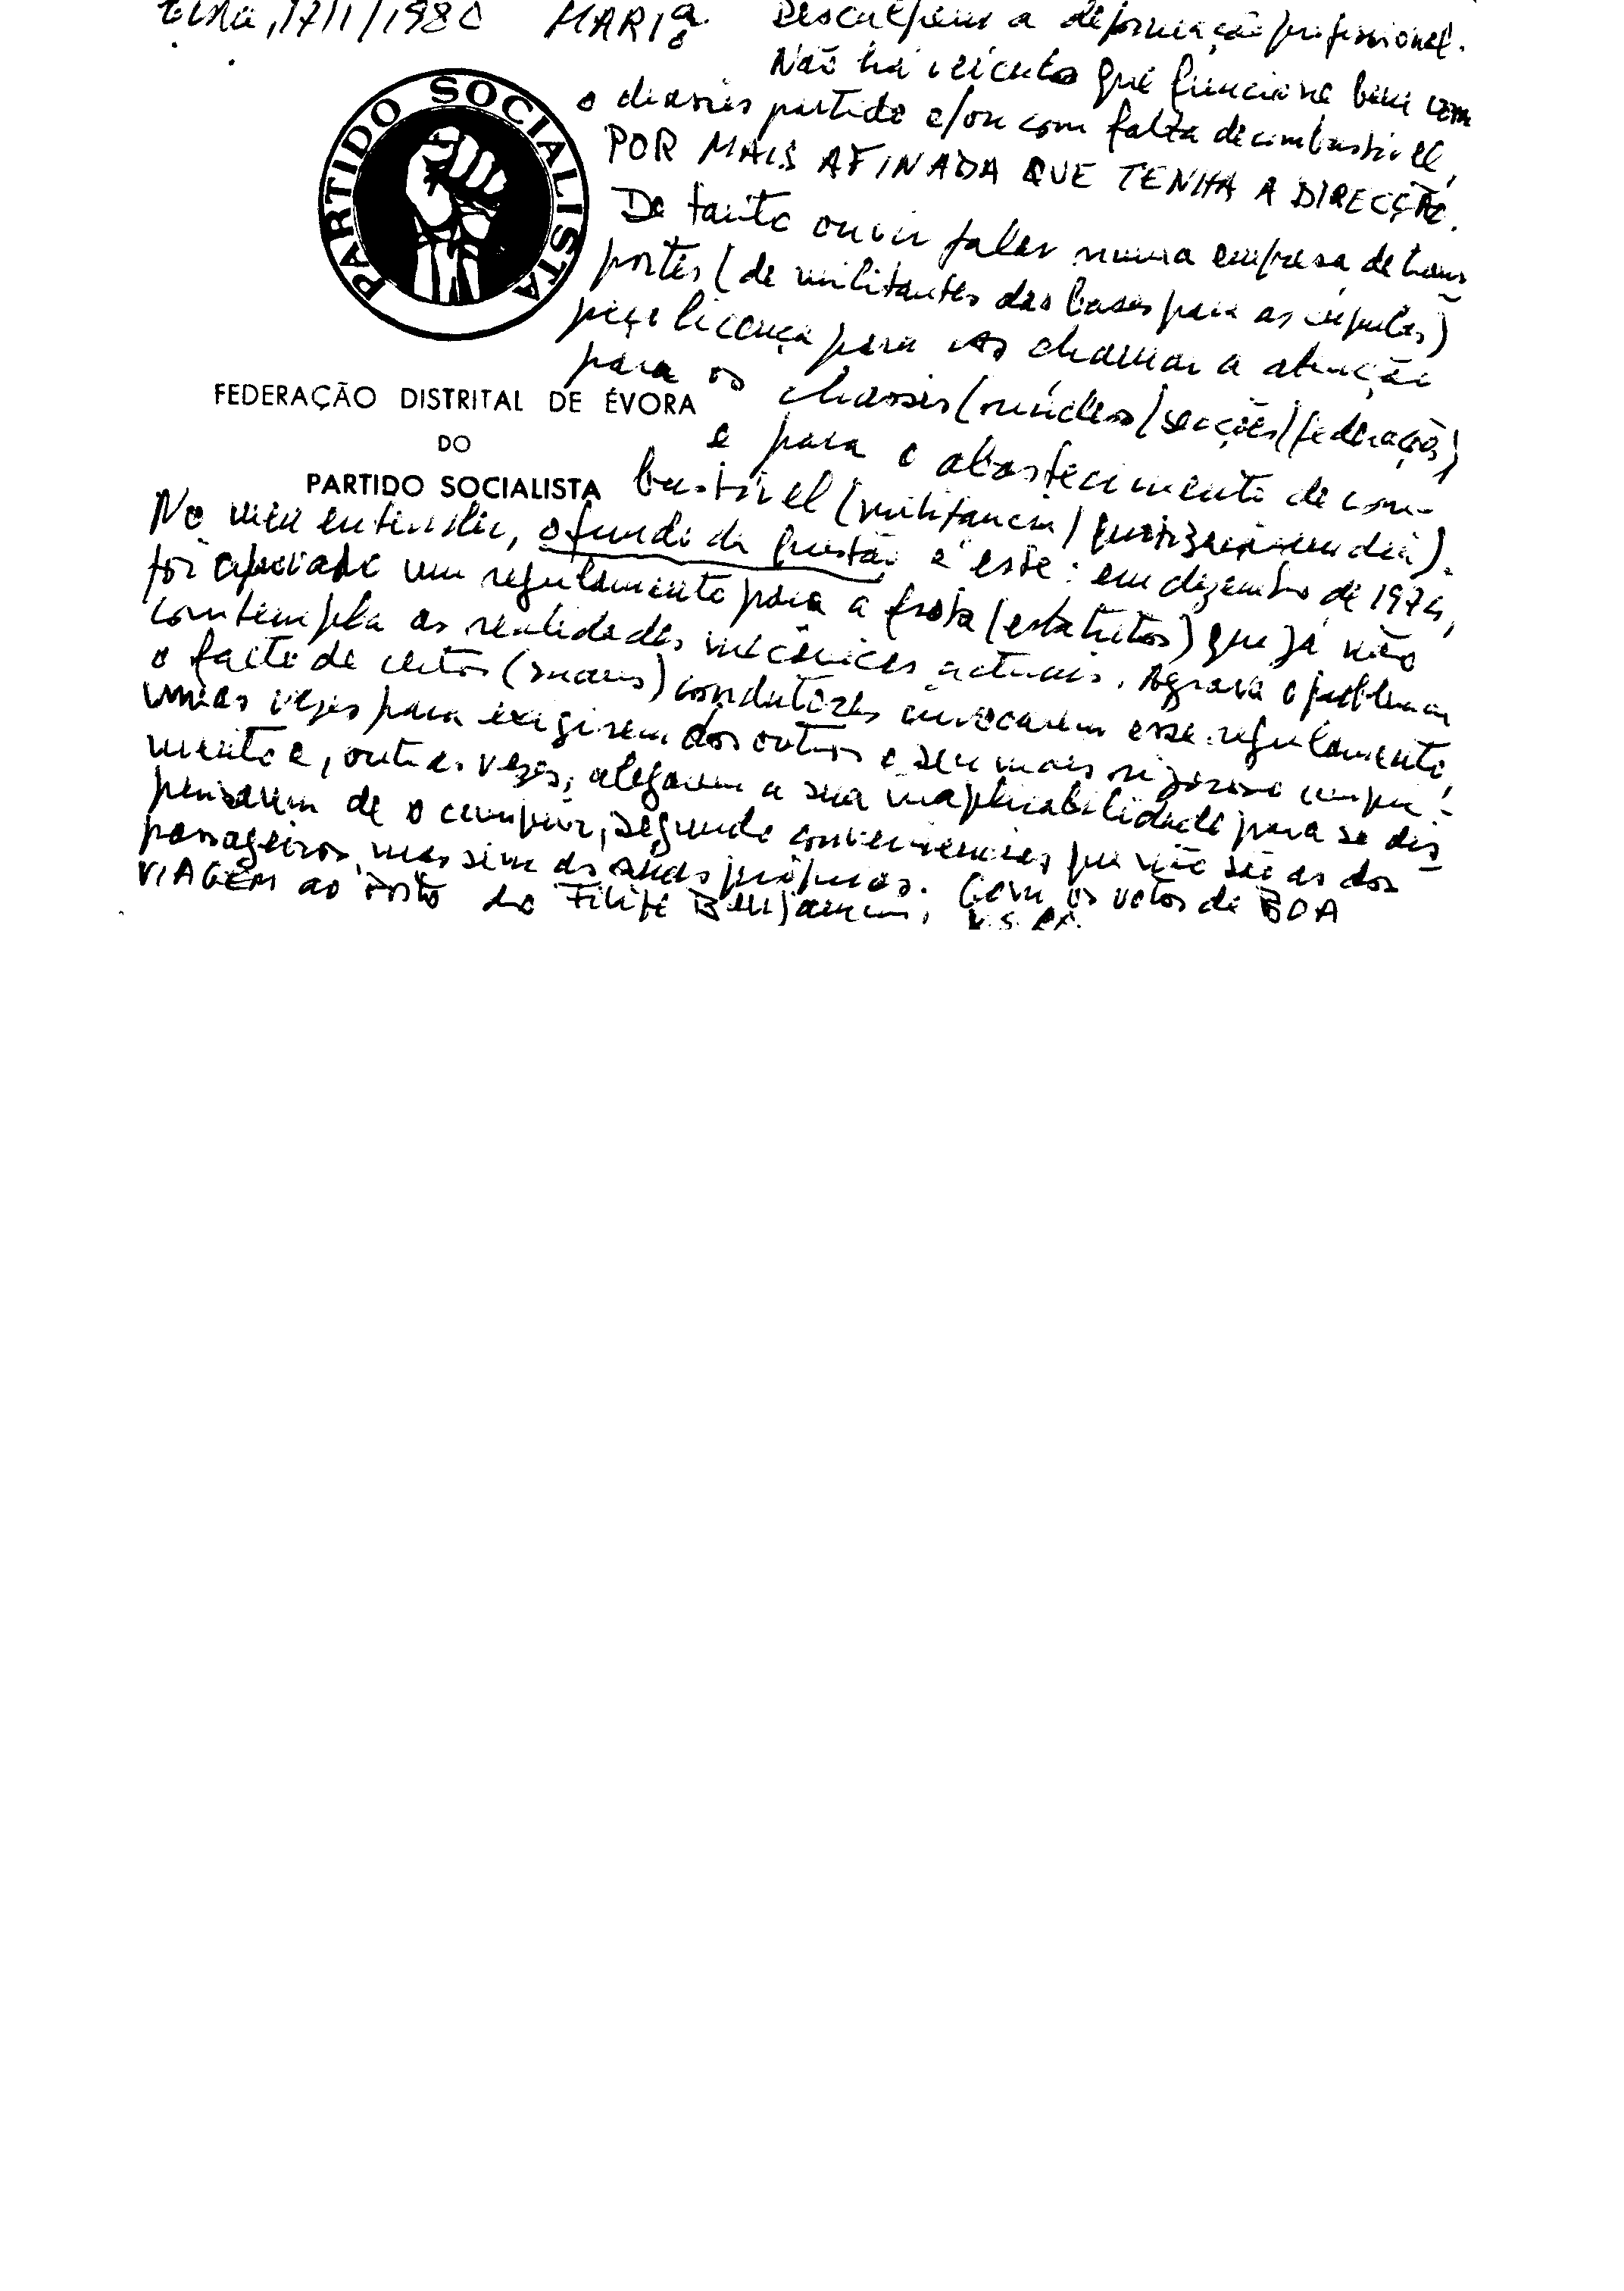 17/1/1980 MARIª. Desculpem a deformação profissional.
Não há veículo que funcione bem com
o chassis partido e/ou com falta de combustível,
POR MAIS AFINADA QUE TENHA A DIRECÇÃO.
De tanto ouvir falar numa empresa de trans
portes (de militantes das bases para as cúpulas)
peço licença para vos chamar a atenção
para os chassis (núcleos/secções/federações)
e para o abastecimento de com-
bustível (militância/quotização em dia).
PARTIDO SOCIALISTA
FEDERAÇÃO DISTRITAL DE ÉVORA
DO
PARTIDO SOCIALISTA
No meu entender, o fundo da questão é este: em dezembro de 1974,
foi aprovado um regulamento para a frota (estatutos) que já não
contempla as realidades mecânicas actuais. Agrava o problema
o facto de certos (maus) condutores invocarem esse regulamento,
umas vezes para exigirem dos outros o seu mais rigoroso cumpri-
mento e, outras vezes, alegarem a sua inaplicabilidade para se dis
pensarem de o cumprir, segundo conveniências que não são as dos
passageiros, mas sim as suas próprias. Com os votos de BOA
VIAGEM ao Porto do Filipe Benjamim,